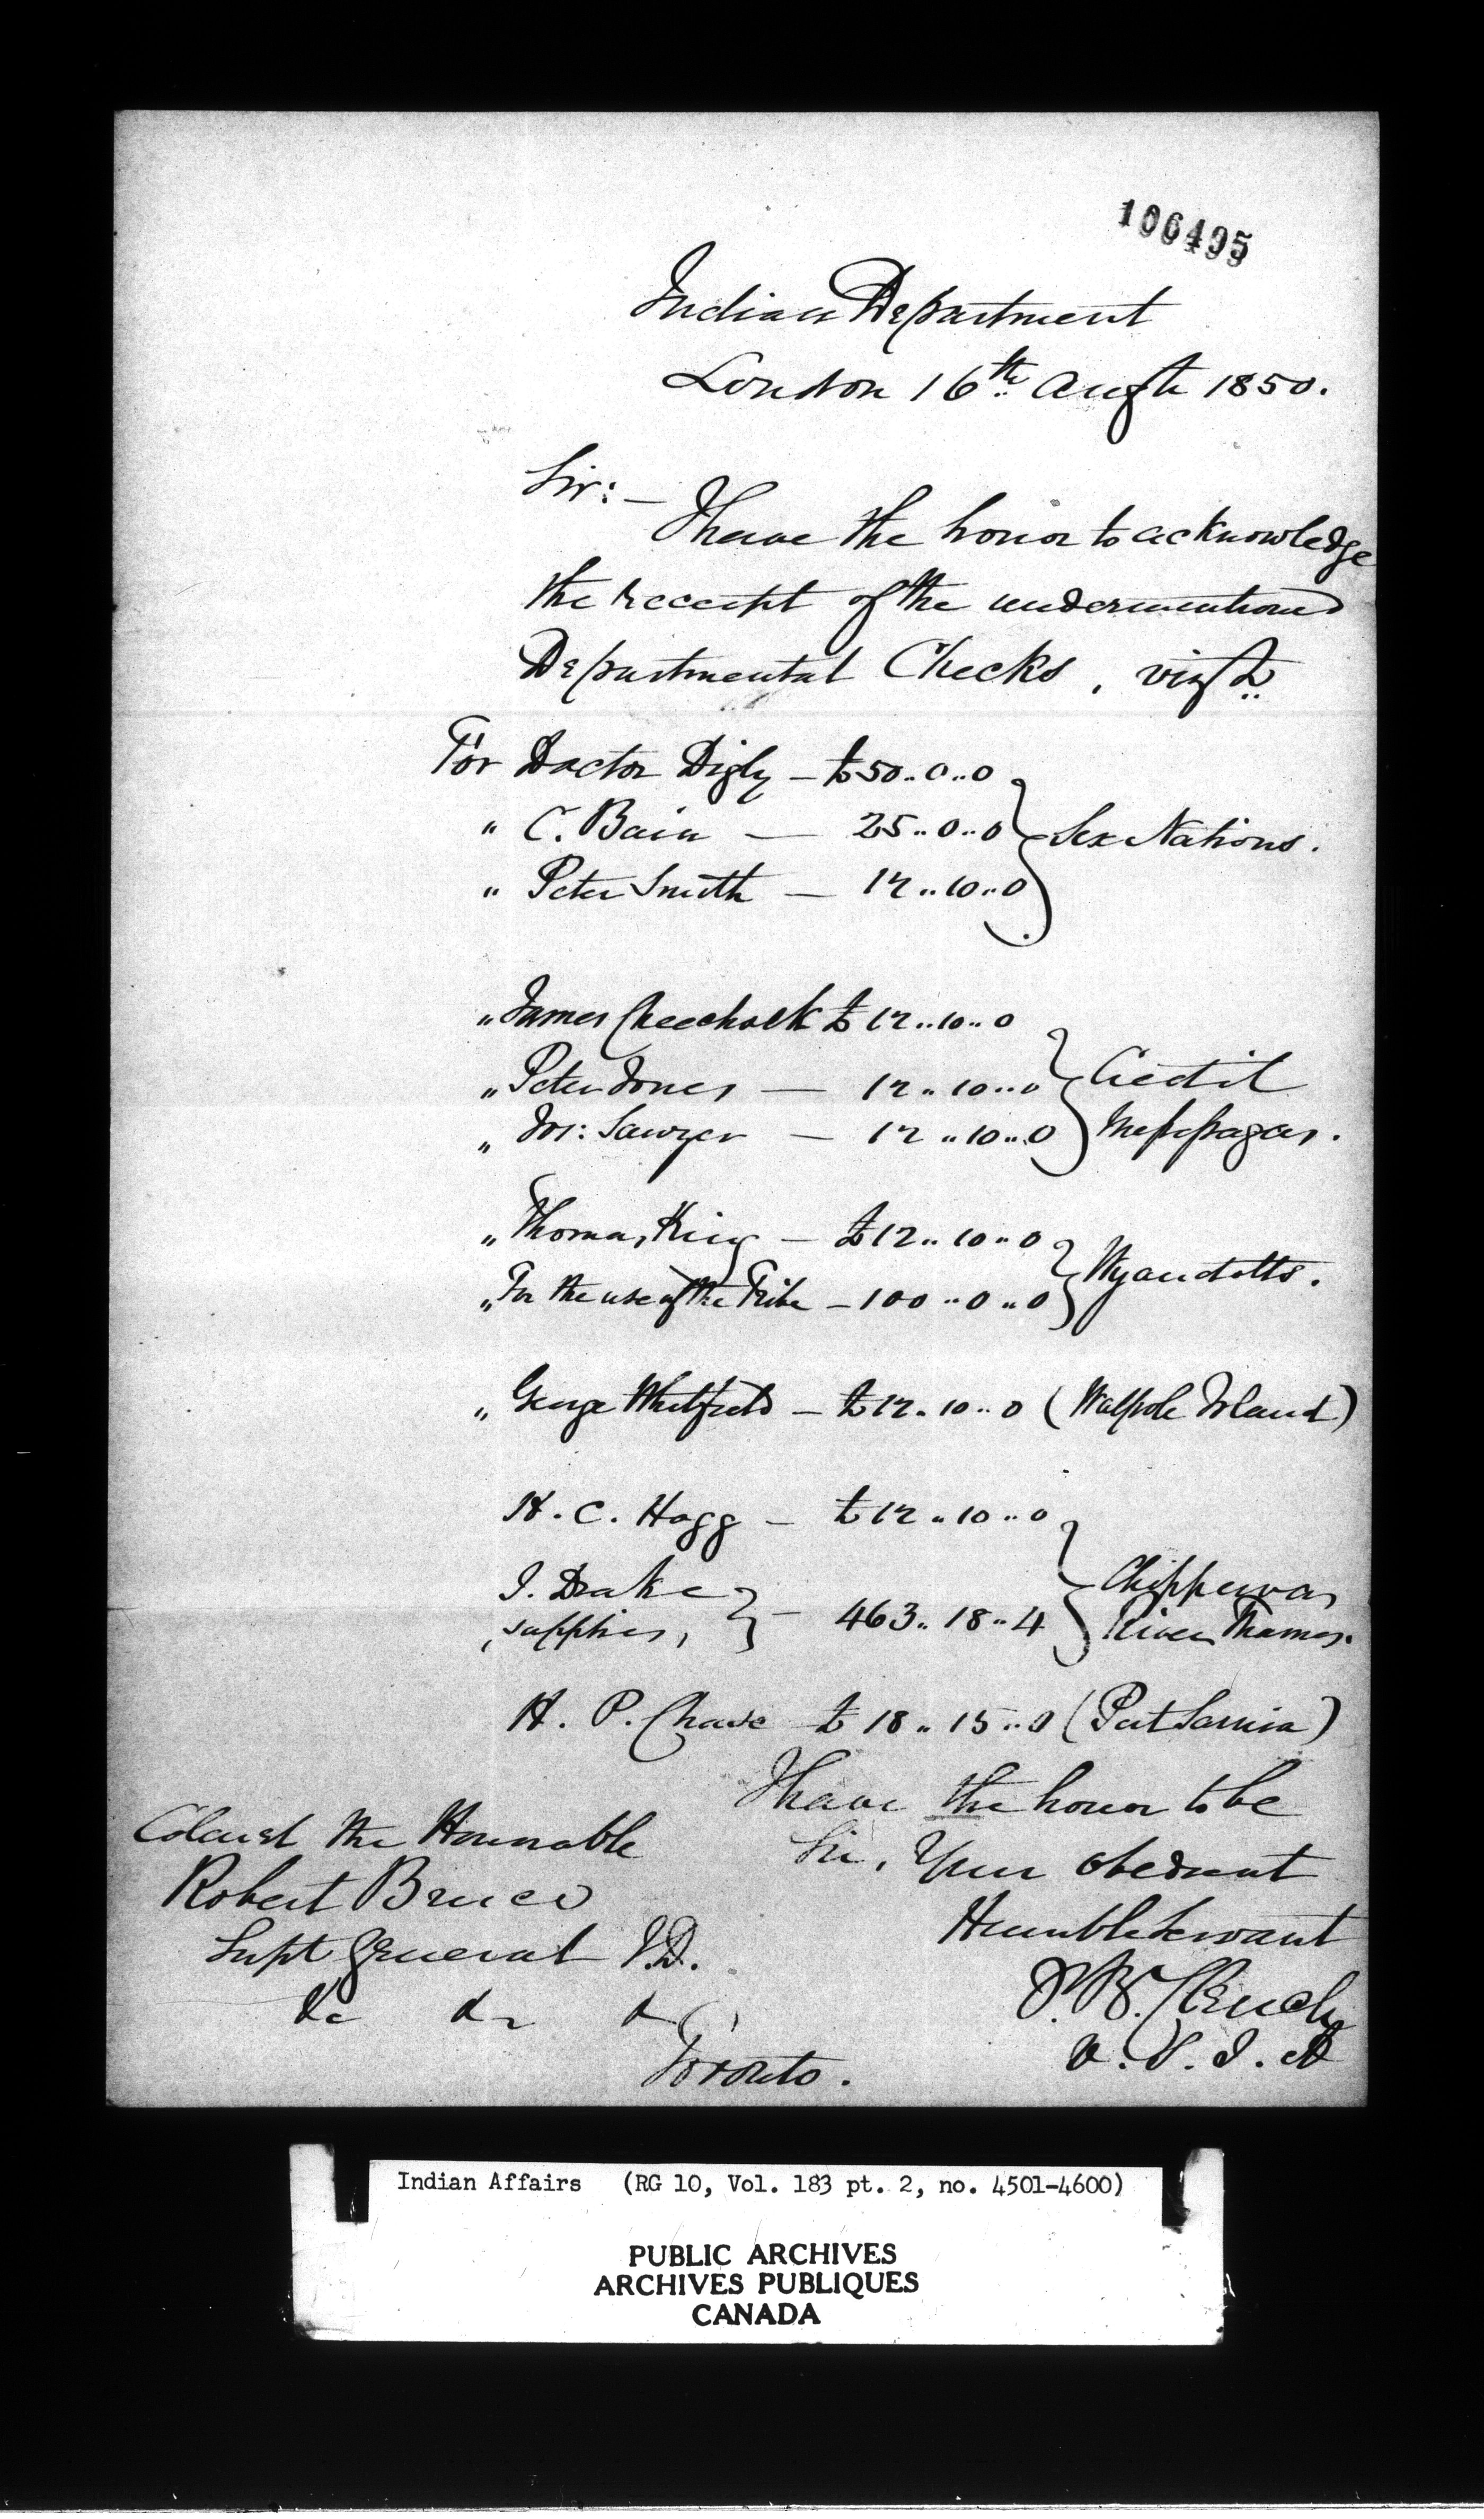 106495
Indian Department
London 16th Augt 1850.
Sir:—
I have the honor to acknowledge
the receipt of the undermentioned
Departmental Checks, vizt
For Doctor Digby — £50..0..0
" C. Bain — 25..0..0 } Six Nations.
" Peter Smith — 12..10..0
" James Cheechalk £12..10..0
" Peter Jones — 12..10..0 } Credit
" Jos: Sawyer — 12..10..0 } Missisagas.
" Thomas King — £12..10..0 } Wyandotts.
" For the use of the Tribe — 100..0..0
" George Whitfield — £12..10..0 (Walpole Island)
H. C. Hogg — £12..10..0
J. Drake } Chippewas
supplies, } — 463..18..4 } River Thames.
H. P. Chase £18..15..0 (Port Sarnia)
I have the honor to be
Sir, Your obedient
Humble Servant
J. B. Clench
S. I. A
Colonel the Honorable
Robert Bruce
Supt General I.D.
&c &c &c
Toronto.
Indian Affairs (RG 10, Vol. 183 pt. 2, no. 4501-4600)
PUBLIC ARCHIVES
ARCHIVES PUBLIQUES
CANADA